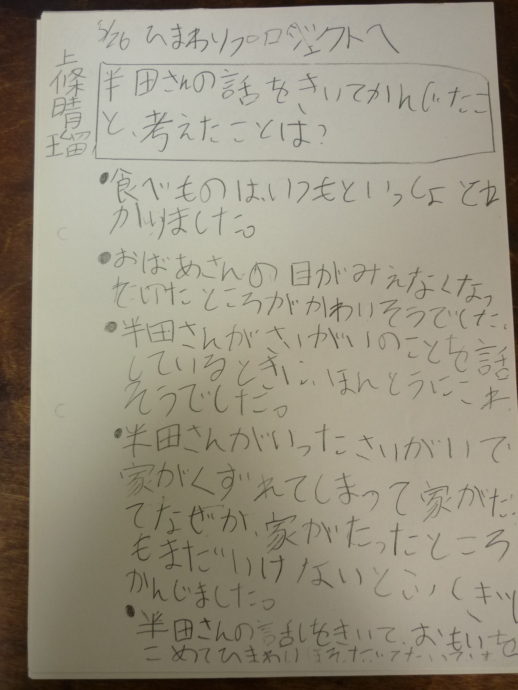 5/26 ひまわりプロジェクトへ
上條晴瑠
半田さんの話をきいてかんじたこ
と、考えたことは?
●食べものは、いつもといっしょとわ
かりました。
●おばあさんの目がみえなくなっ
ていたところがかわいそうでした。
●半田さんがさいがいのことを話
しているときに、ほんとうにこわ
そうでした。
●半田さんがいったさいがいで
家がくずれてしまって家がた
てなぜか、家がたったところ
もまだいけないという
かんじました。
●半田さんの話しをきいて、おもいを
こめてひまわり